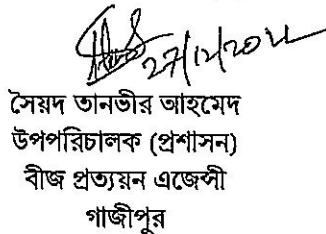 27/12/2022
সৈয়দ তানভীর আহমেদ
উপপরিচালক (প্রশাসন)
বীজ প্রত্যয়ন এজেন্সী
গাজীপুর